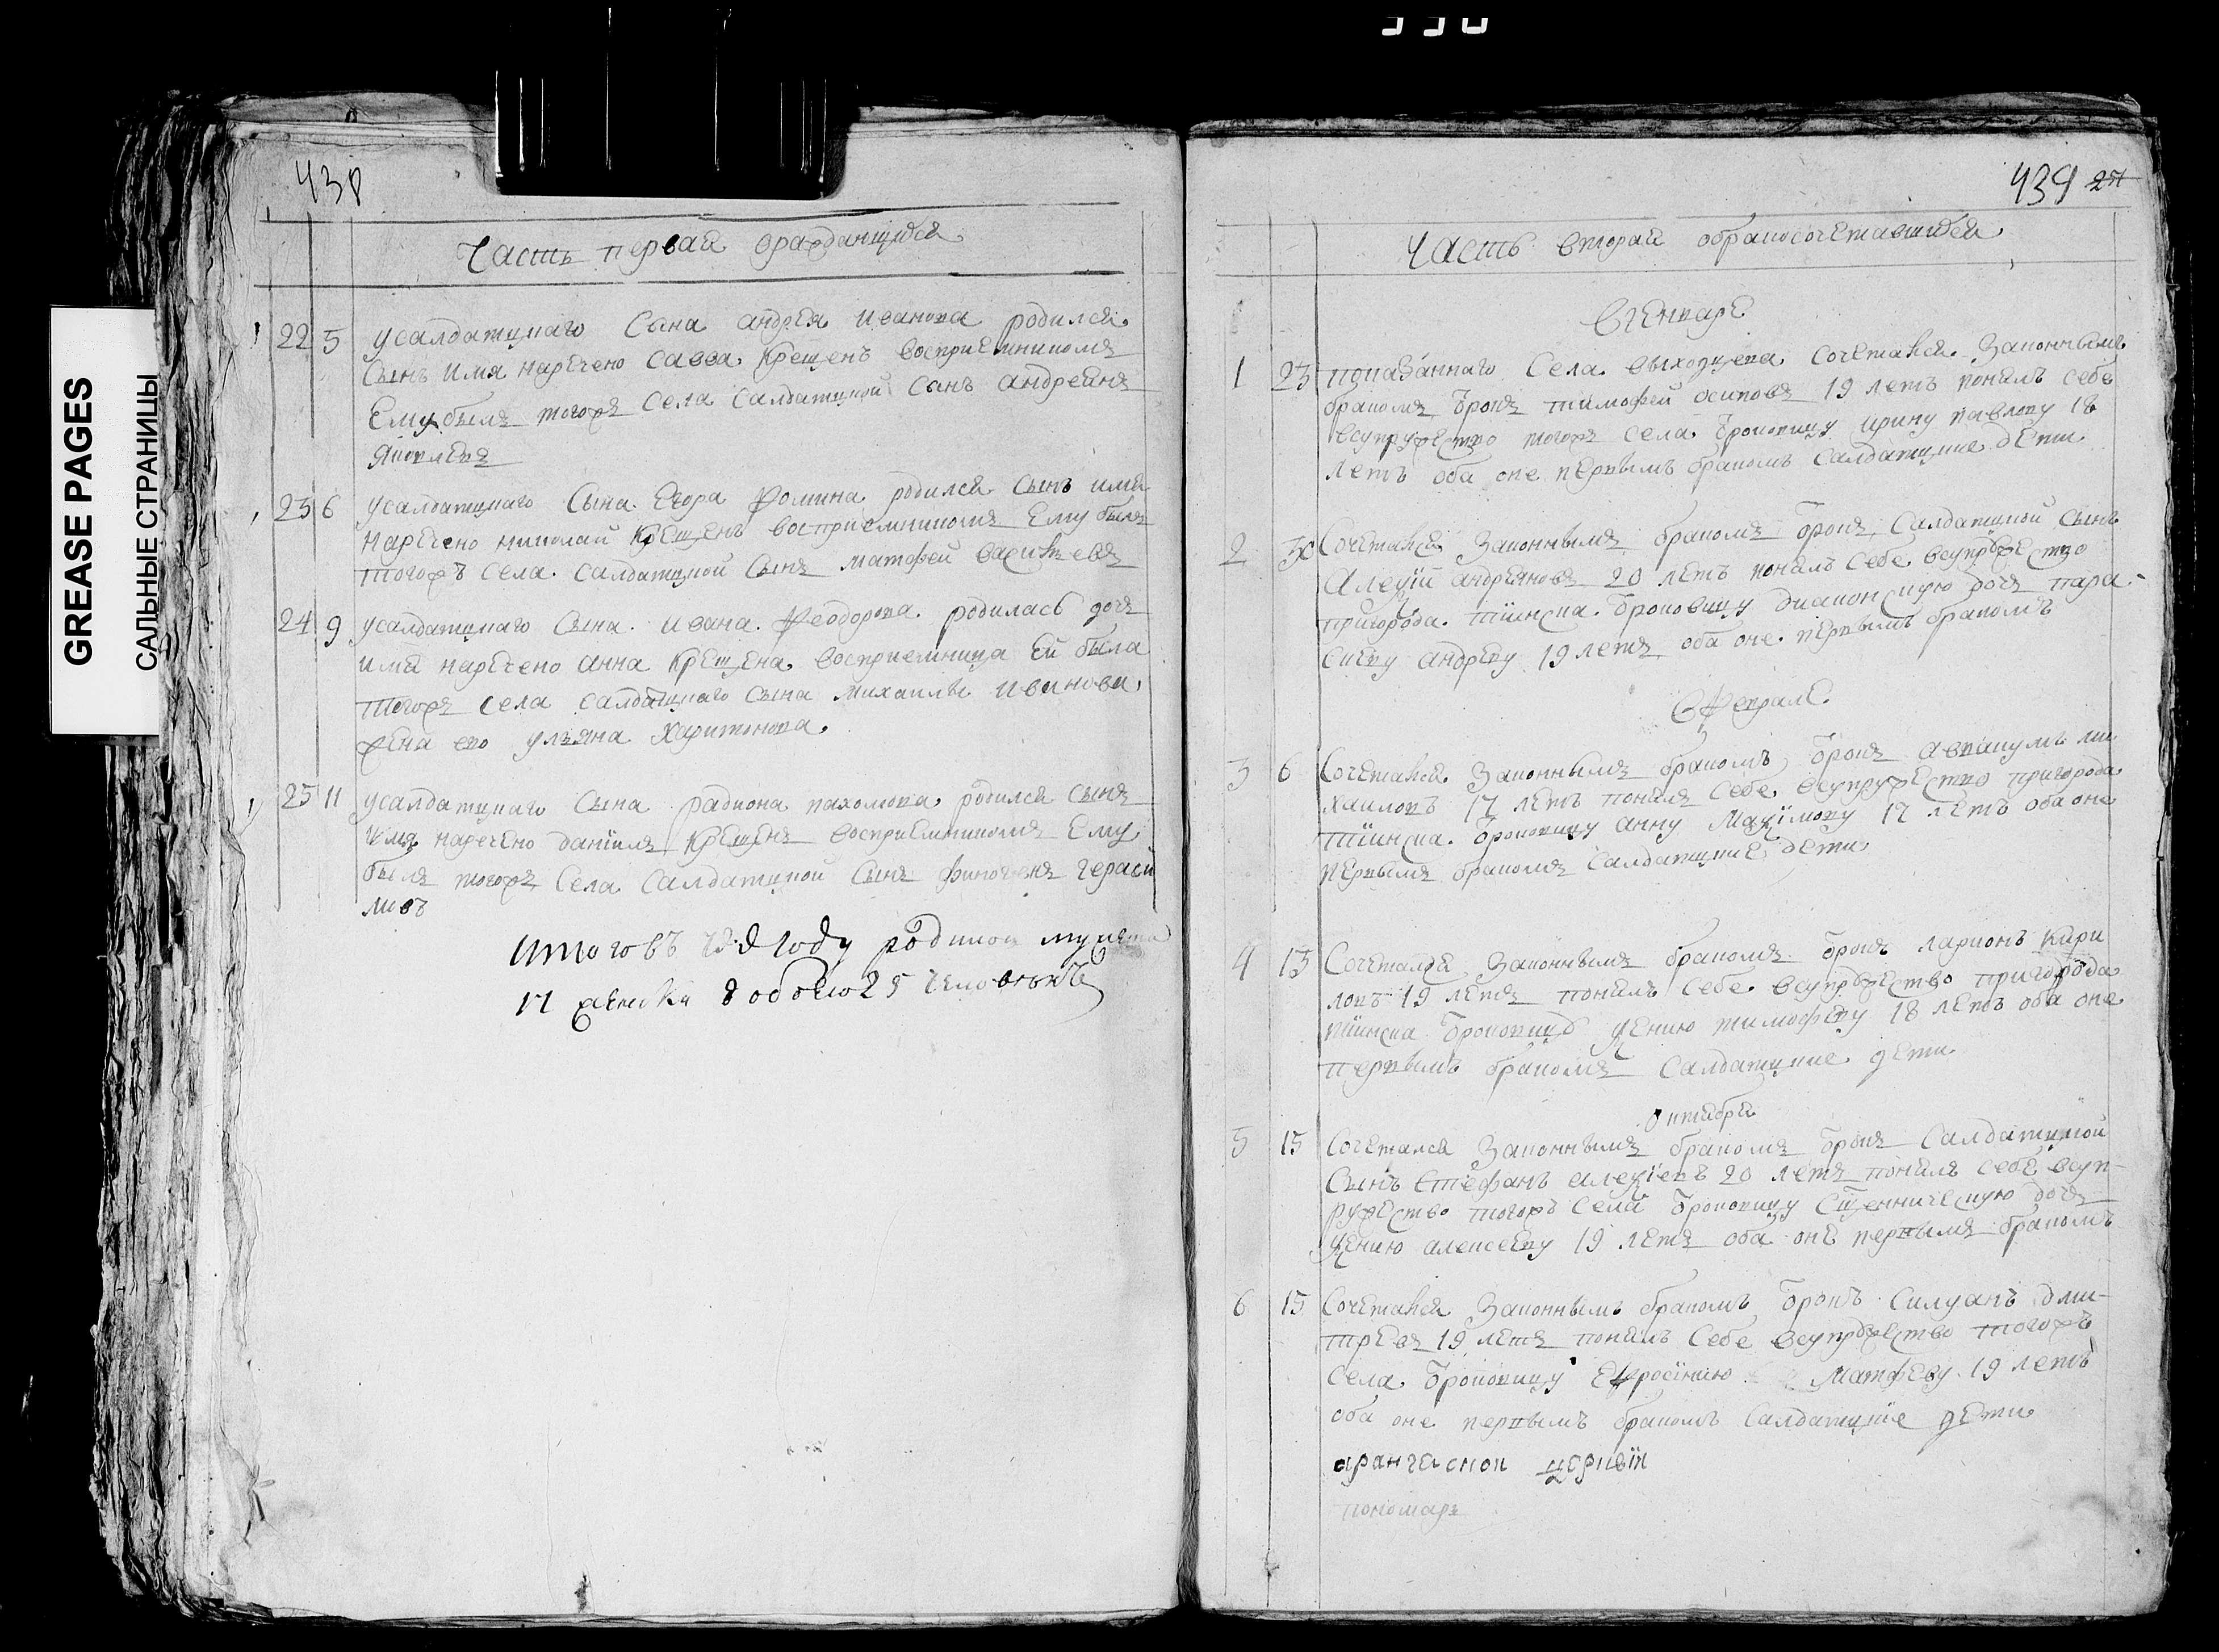 GREASE PAGES
САЛЬНЫЕ СТРАНИЦЫ
438
Часть первая ораждающихся
22 5 усалдатцкаго Сына андрея иванова родился
Сынъ имя наречено савва крещенъ восприемникомъ
Ему былъ тогожъ села салдатцкой сынъ андреянъ
яковлевъ
23 6 усалдатцкаго Сына Егора Фомина родился Сынъ имя
наречено николай крещенъ восприемникомъ Ему былъ
тогожъ села салдатцкой Сынъ матфей васильевъ
24 9 усалдатцкаго Сына ивана Феодорова родилась дочь
имя наречено анна крещена восприемница ей была
тогожъ села салдатцкаго сына михаилы иванова
жена ево ульяна харитонова
25 11 усалдатцкаго Сына радиона пахомова родился сынъ
имя наречено данїилъ крещенъ восприемникомъ Ему
былъ тогожъ Села Салдатцкой Сынъ финогенъ гераси
мовъ
Итого въ году родилось мужеска
17 женска 8 обоего 25 человекъ
439 27
Часть вторая обракосочетавшихся
Вгенваре
1 23 показаннаго Села выходцева сочетался Законнымъ
бракомъ брокъ тимофей осиповъ 19 летъ понялъ себе
всупружество тогожъ села броковицу ирину павлову 18
летъ оба оне первымъ бракомъ салдатцкие дети
2 30 Сочетался Законнымъ бракомъ брокъ Салдатцкой сынъ
Алеѯїй андреяновъ 20 летъ понялъ себе всупружество
пригорода тїинска броковицу диаконскую дочь пара-
скеву андрееву 19 летъ оба оне первымъ бракомъ
Вфеврале
3 6 Сочетался Законнымъ бракомъ брокъ аввакумъ ми
хаиловъ 17 летъ понялъ себе всупружество пригорода
тїинска броковицу анну Маѯїмову 17 летъ оба оне
первымъ бракомъ салдатцкие дети
4 13 Сочетался Законнымъ бракомъ брокъ ларионъ кири
ловъ 19 летъ понялъ себе всупружество пригорода
тїинска броковицу ѯению тимофееву 18 летъ оба оне
первымъ бракомъ салдатцкие дети
Октября
5 15 Сочетался Законнымъ бракомъ брокъ Салдатцкой
Сынъ Стефанъ алеѯїевъ 20 летъ понялъ себе всуп-
ружество тогожъ села броковицу Сщенническую дочь
ѯению алексееву 19 летъ оба оне первымъ бракомъ
6 15 Сочетался Законнымъ бракомъ брокъ Силуанъ дми-
треевъ 19 летъ понялъ себе всупружество тогожъ
села броковицу Ефросїнию Матфееву 19 летъ
оба оне первымъ бракомъ салдатцкїе дети
аранческой церквїи
пономарь